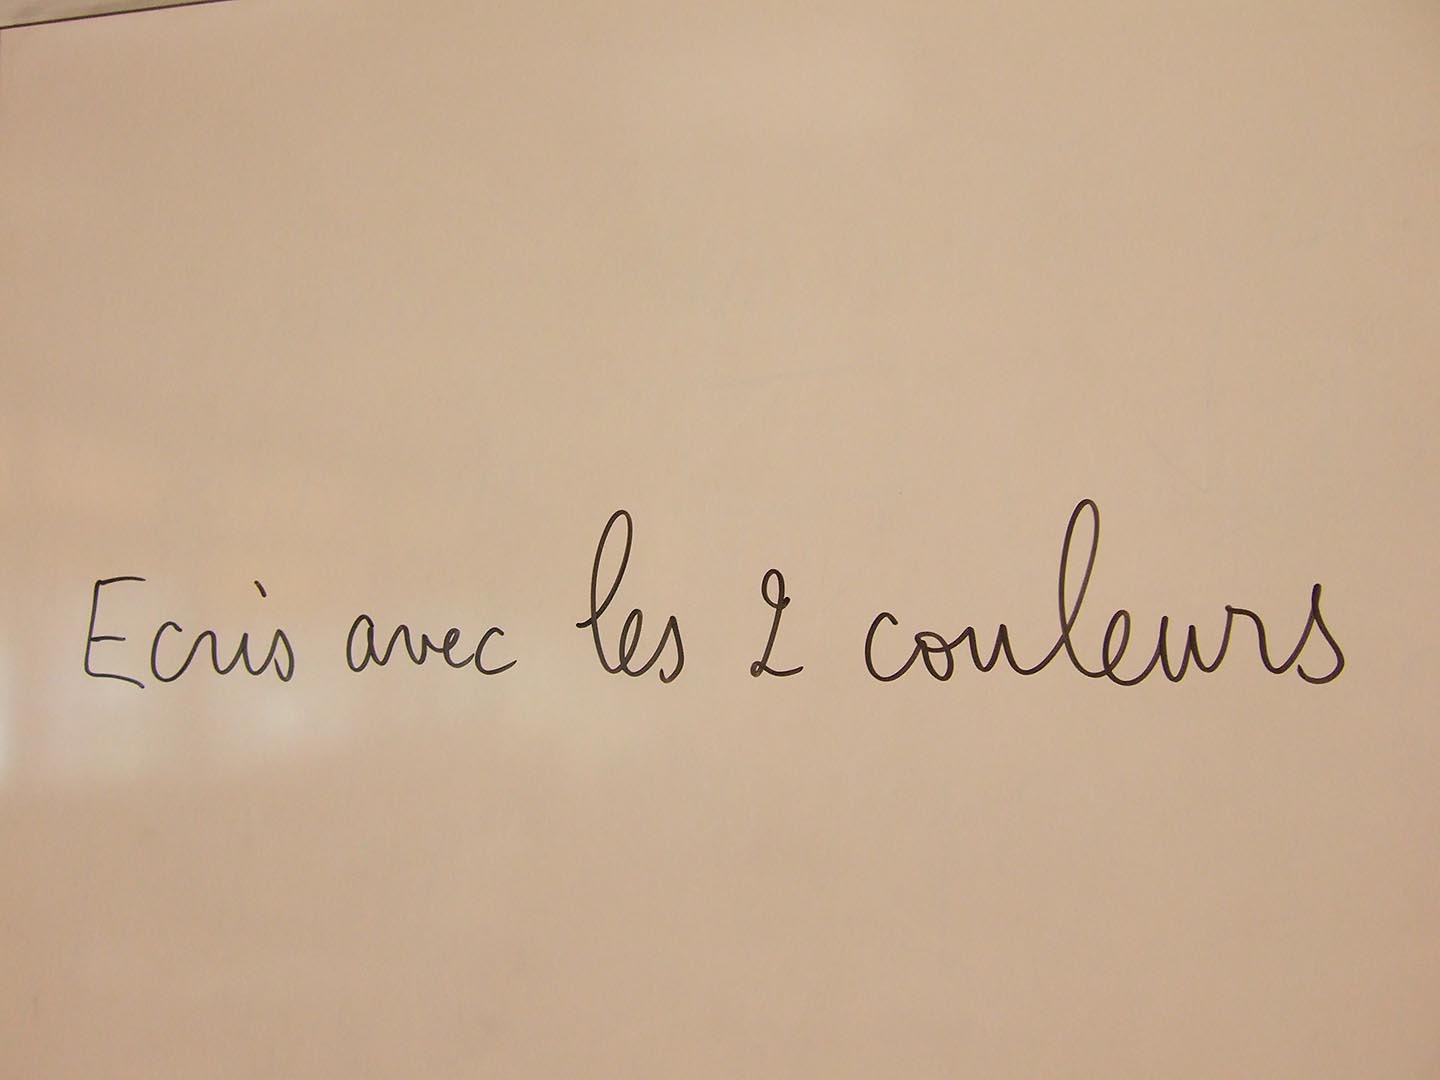 Ecris avec les 2 couleurs